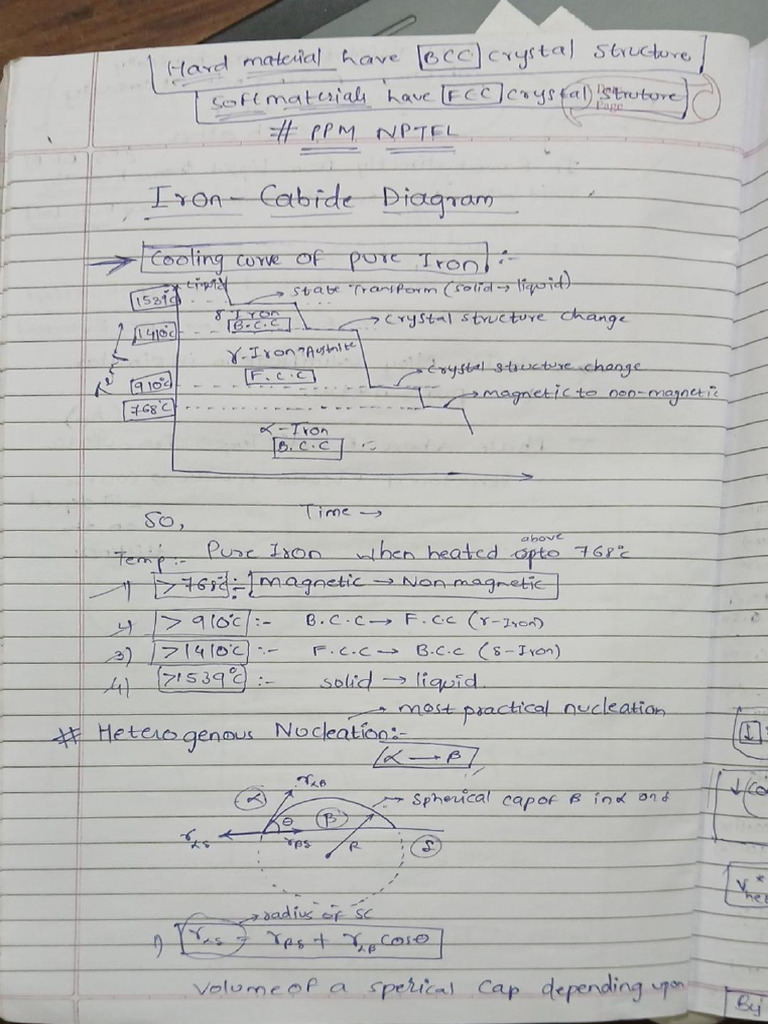 Hard material have [BCC] crystal structure
Soft materials have [FCC] crystal struture
# PPM NPTEL
Iron - Cabide Diagram
→ Cooling curve of pure Iron :-
1539°C Liquid → State Transform (solid → liquid)
δ Iron
B.C.C
1410°C → Crystal structure change
γ-Iron → Austnite
F.C.C
910°C → crystal structure change
768°C → magnetic to non-magnetic
Temp
α-Iron
B.C.C
Time →
So,
above
Temp :- Pure Iron when heated upto 768°C
1) > 768°C :- Magnetic → Non magnetic
2) > 910°C :- B.C.C → F.C.C (γ-Iron)
3) >1410°C :- F.C.C → B.C.C (δ-Iron)
4) >1539°C :- solid → liquid.
→ most practical nucleation
# Heterogenous Nucleation:-
α → β
α γαβ
→ spherical cap of β in α on δ
θ β
γαs γβs R δ
→ radius of sc
1) γαs = γβs + γαβ cosθ
Volume of a sperical cap depending upon
V*
By